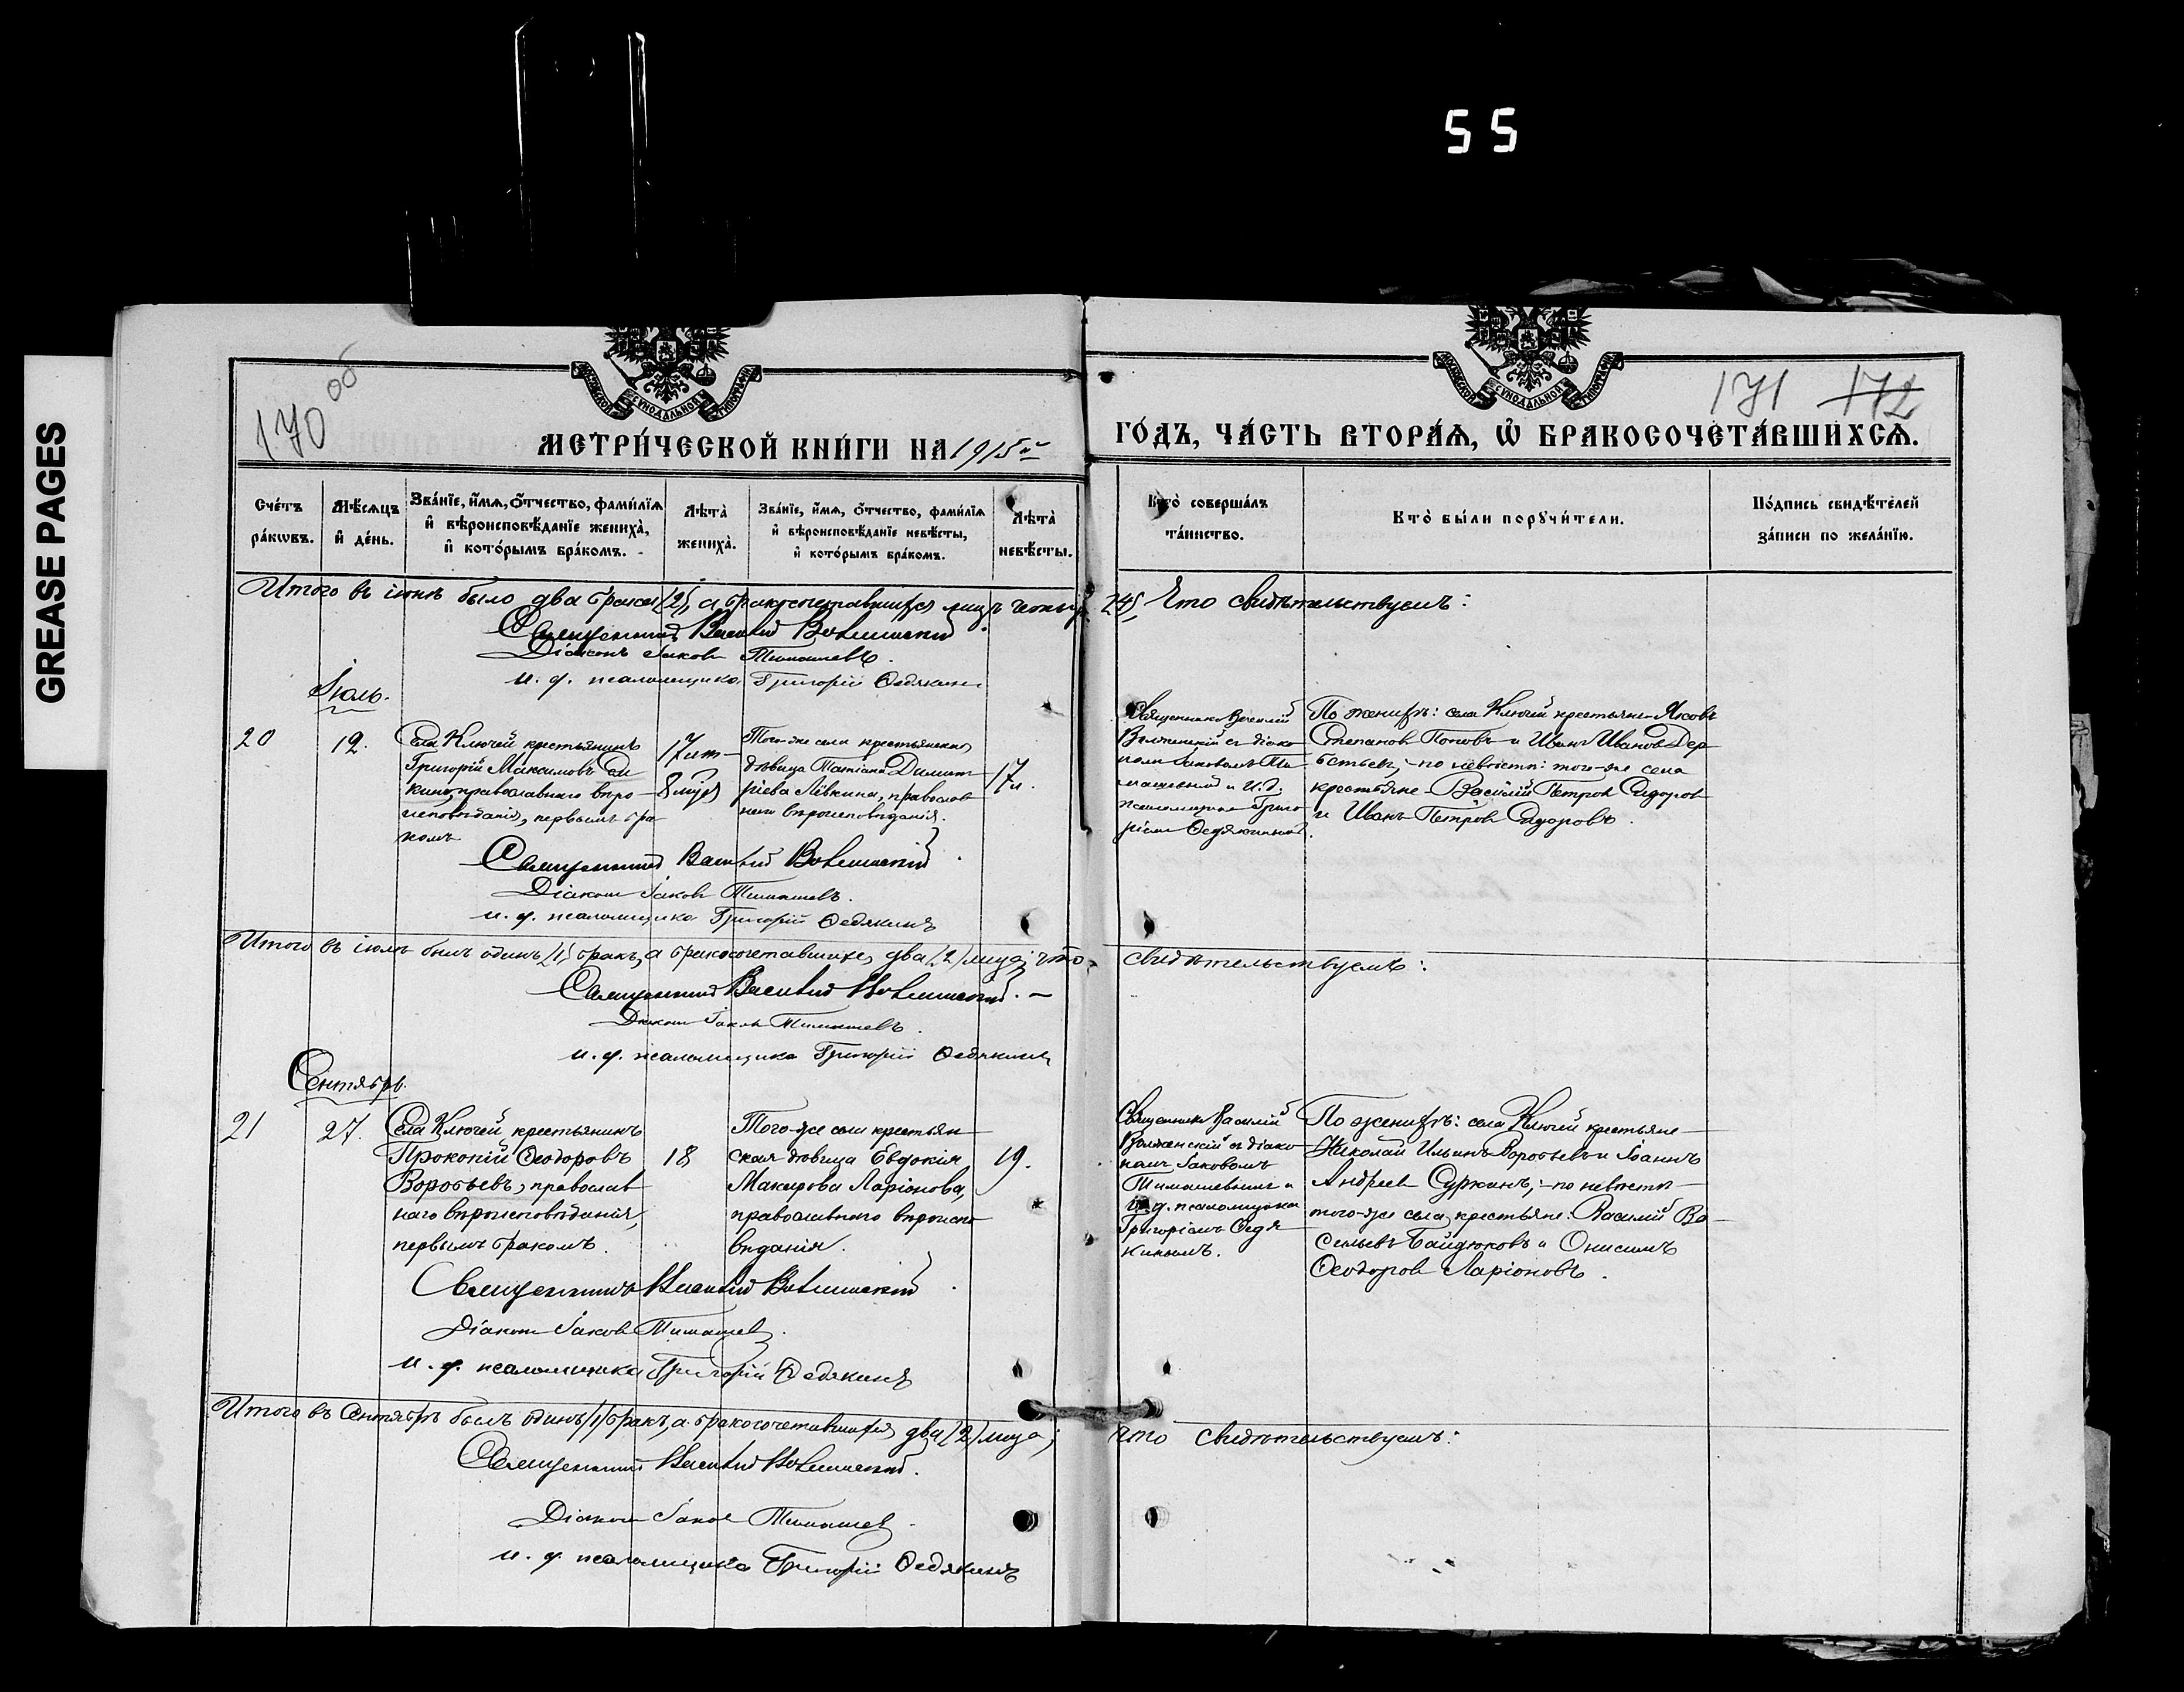 55
GREASE PAGES
170 об
171 172
МЕТРИ́ЧЕСКОЙ КНИ́ГИ НА 1915й
ГО́ДЪ, ЧА́СТЬ ВТОРА́Я, Ѡ҆ БРАКОСОЧЕТА́ВШИХСЯ.
Сче́тъ
ра́кѡвъ.
Мѣ́сяцъ
и҆ де́нь.
Зва́нїе, и҆́мя, ѻ҆́тчество, фами́лїя
и҆ вѣроисповѣ́данїе жениха̀,
и҆ кото́рымъ бра́комъ.
Лѣ́та̀
жениха̀.
Зва́нїе, и҆́мя, ѻ҆́тчество, фами́лїя
и҆ вѣроисповѣ́данїе невѣ́сты,
и҆ кото́рымъ бра́комъ.
Лѣ́та̀
невѣ́сты.
Кто̀ соверша́лъ
та́инство.
Кто̀ бы́ли порꙋчи́тели.
По́дпись свидѣ́телей
за́писи по жела́нїю.
Итого въ іюнѣ было два брака /2/, а бракосочетавшихся лицъ четыр /4/, Что свидѣтельствуемъ:
Священникъ Василій Волжинскій
Діаконъ Іаковъ Тимашевъ.
и. д. псаломщика Григорій Ѳедякинъ
Іюль.
20
12.
Села Ключей крестьянинъ
Григорій Максимовъ
православнаго вѣро
исповѣданія, первымъ бра
комъ
17 лѣт
8 мѣся
Того-же села крестьянская
дѣвица Татіана Димит
ріева Лівкина, православ
наго вѣроисповѣданія.
17 л.
Священникъ Василій
Волжинскій съ діако
номъ Іаковомъ Ти
машевымъ и И.д.
псаломщика Григо
ріемъ Ѳедякинымъ.
По женихѣ: села Ключей крестьяне Яковъ
Степановъ Поповъ и Иванъ Ивановъ Дер
бенева, - по невѣстѣ: того-же села
крестьяне Василій Петровъ Сидоровъ
и Иванъ Петровъ Сидоровъ.
Священникъ Василій Волжинскій
Діаконъ Іаковъ Тимашевъ.
и. д. псаломщика Григорій Ѳедякинъ
Итого въ іюлѣ былъ одинъ /1/ бракъ, а бракосочетавшихся два /2/ лица; что свидѣтельствуемъ:
Священникъ Василій Волжинскій.
Діаконъ Іаковъ Тимашевъ.
и. д. псаломщика Григорій Ѳедякинъ
Сентябрь.
21
27.
Села Ключей крестьянинъ
Прокопій Ѳеодоровъ
Воробьевъ, православ
наго вѣроисповѣданія,
первымъ бракомъ.
18
Того-же села крестьян
ская дѣвица Евдокія
Макарова Ларіонова,
православнаго вѣроиспо
вѣданія.
19.
Священникъ Василій
Волжинскій съ діако
номъ Іаковомъ
Тимашевымъ и
и. д. псаломщика
Григоріемъ Ѳедя
кинымъ.
По женихѣ: села Ключей крестьяне
Николай Ильинъ Воробьевъ и Іоаннъ
Андреевъ Суркинъ; - по невѣстѣ
того-же села крестьяне: Василій Ва
сильевъ Байдюковъ и Онисимъ
Ѳеодоровъ Ларіоновъ.
Священникъ Василій Волжинскій
Діаконъ Іаковъ Тимашевъ.
и. д. псаломщика Григорій Ѳедякинъ
Итого въ Сентябрѣ былъ одинъ /1/ бракъ, а бракосочетавшихся два /2/ лица; что свидѣтельствуемъ:
Священникъ Василій Волжинскій.
Діаконъ Іаковъ Тимашевъ
и. д. псаломщика Григорій Ѳедякинъ